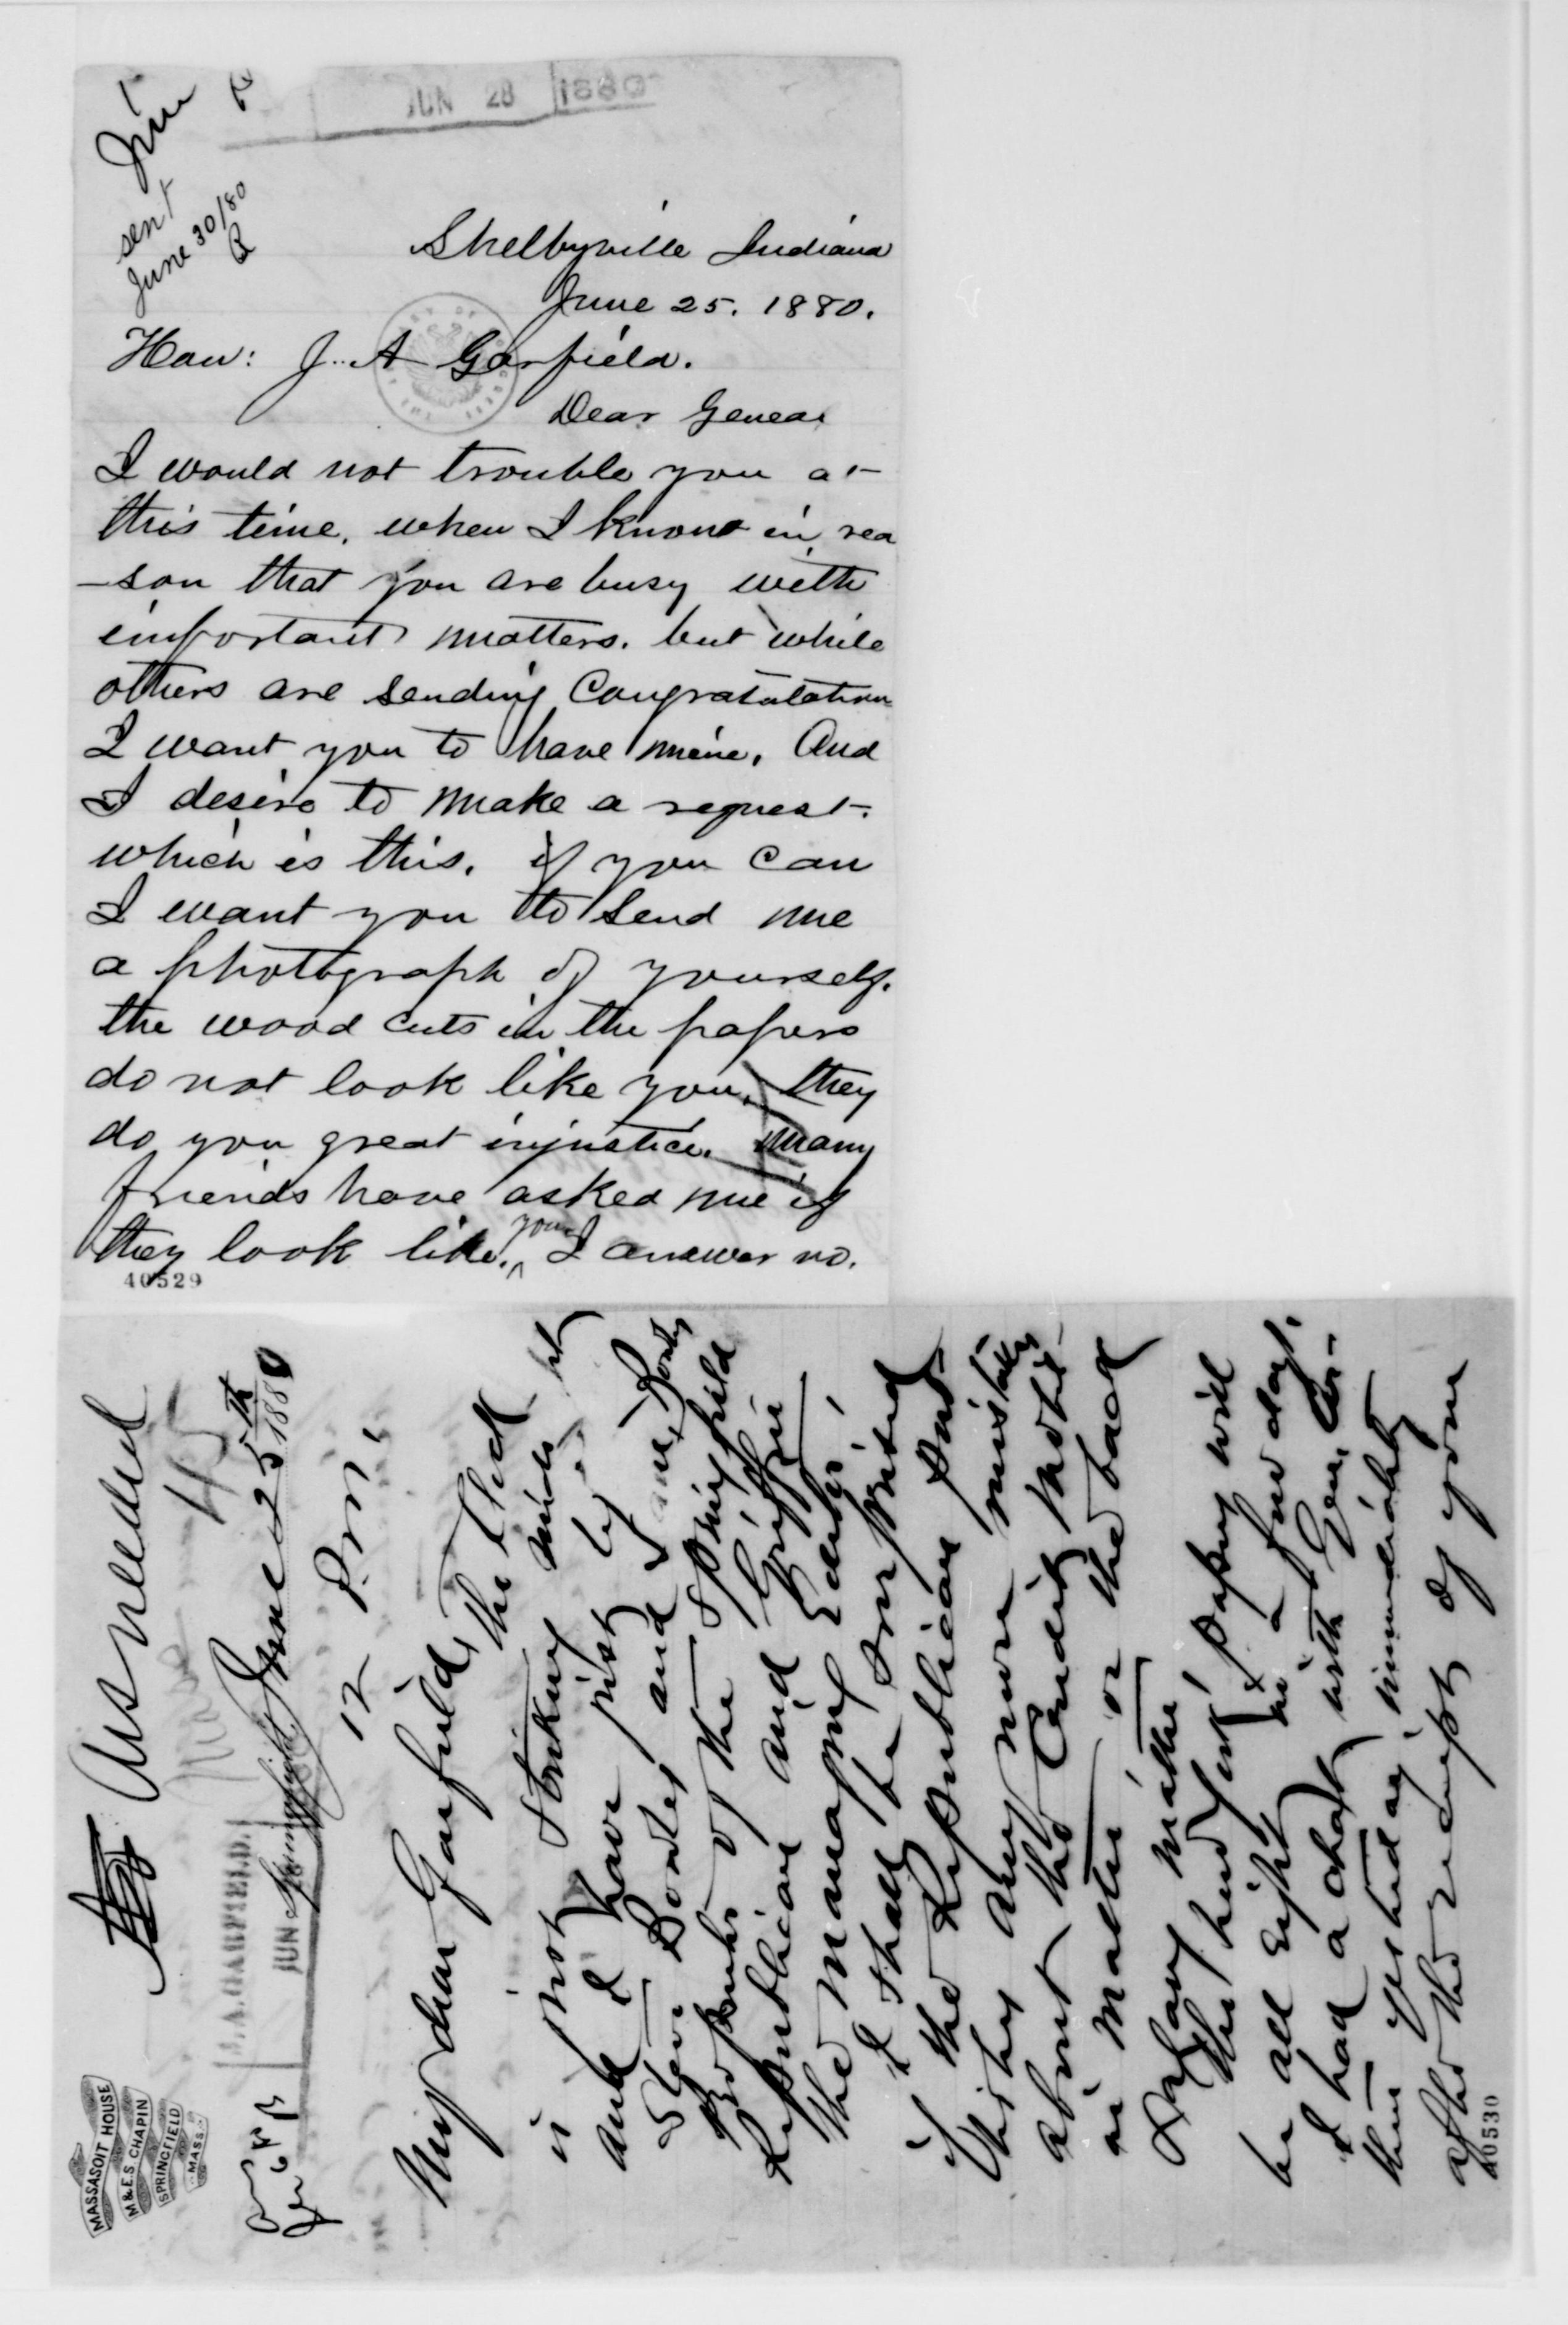 JUN 28 1880
sent
June 30/80
Shelbyville Indiana
June 25. 1880.
Hon: J. A Garfield.
Dear Genear
I would not trouble you at
this time, when I know in rea
-son that you are busy with
important matters. but while
others are sending Congratulation
I want you to have mine. And
I desire to make a request.
which is this. if you can
I want you to send me
a photograph of yourself.
the wood cuts in the papers
do not look like you. they
do you great injustice. Many
friends have asked me if
they look like. you I answer no.
40529
MASSASOIT HOUSE
M & E.S. CHAPIN
SPRINGFIELD
MASS.
Answered
J. A. GARFIELD.
JUN
Springfield June 25th 1880
12 P.M.
My dear Garfield, The Clock
is now striking midnight
and I have just by
Bowles and
of the Springfield
Republican and Griffin
the managing Editor
I shall be surprised
if the Republican
any more mistakes
about the Credit Mobil-
ier matter or the back
Salary matter.
The paper will
be all right in a few days.
I had a chat with Gen.
yesterday, immediately
after the receipt of your
40530